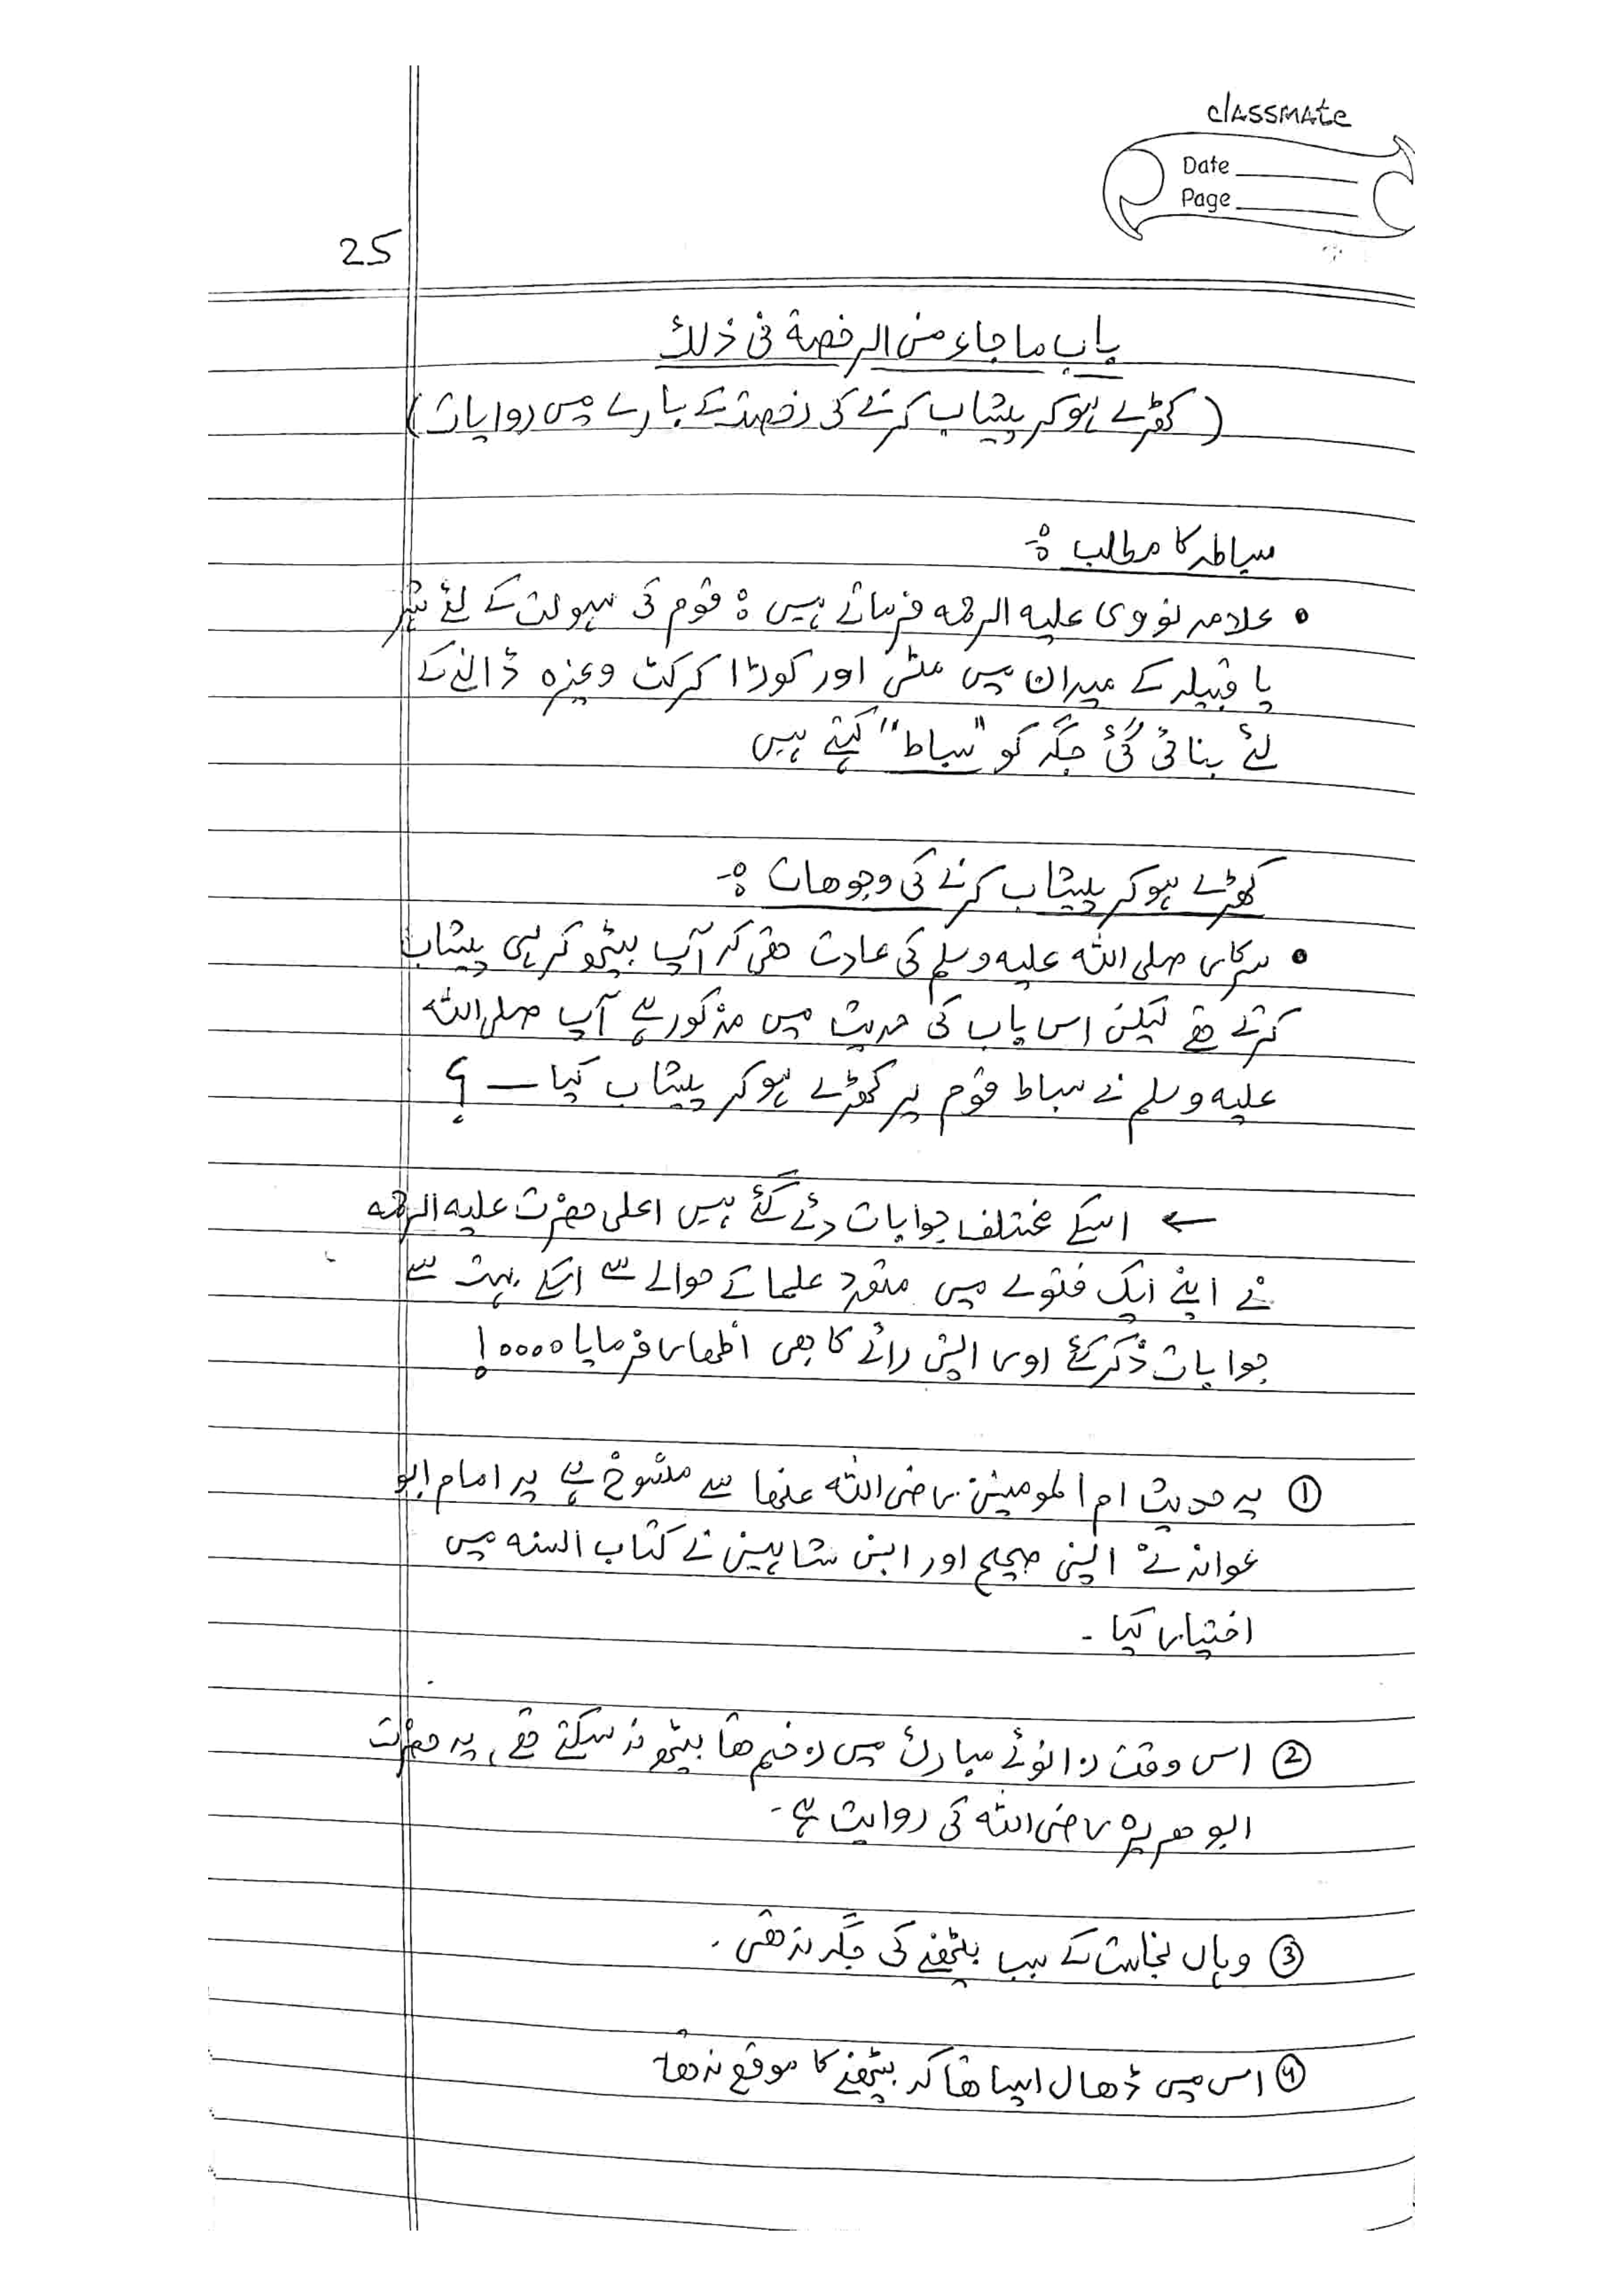 classmate
Date
Page
25
باب ما جاء من الرخصة فی ذلك
(کھڑے ہوکر پیشاب کرنے کی رخصت کے بارے میں روایات)
سباطہ کا مطلب :-
• علامہ نووی علیہ الرحمہ فرماتے ہیں : قوم کی سہولت کے لئے شہر
یا قبیلہ کے میدان میں مٹی اور کوڑا کرکٹ وغیرہ ڈالنے کے
لئے بنائی گئی جگہ کو "سباط" کہتے ہیں
کھڑے ہوکر پیشاب کرنے کی وجوھات :-
• سرکار صلی اللہ علیہ وسلم کی عادت تھی کہ آپ بیٹھ کر ہی پیشاب
کرتے تھے لیکن اس باب کی حدیث میں مذکور ہے آپ صلی اللہ
علیہ وسلم نے سباط قوم پر کھڑے ہوکر پیشاب کیا — ؟
← اسکے مختلف جوابات دئے گئے ہیں اعلی حضرت علیہ الرحمہ
نے اپنے ایک فتوے میں متعدد علما کے حوالے سے اسکے بہت سے
جوابات ذکر کئے اور اپنی رائے کا بھی اظھار فرمایا ۰۰۰۰!
① یہ حدیث ام المومینن رضی اللہ عنھا سے منسوخ ہے یہ امام ابو
عوانہ نے اپنی صحیح اور ابن شاہین نے کتاب السنہ میں
اختیار کیا ۔
② اس وقت زانوئے مبارک میں زخم تھا بیٹھ نہ سکتے تھے، یہ حضرت
ابو ھریرہ رضی اللہ کی روایت ہے ۔
③ وہاں نجاست کے سبب بیٹھنے کی جگہ نہ تھی ۔
④ اس میں ڈھال ایسا تھا کہ بیٹھنے کا موقع نہ تھا